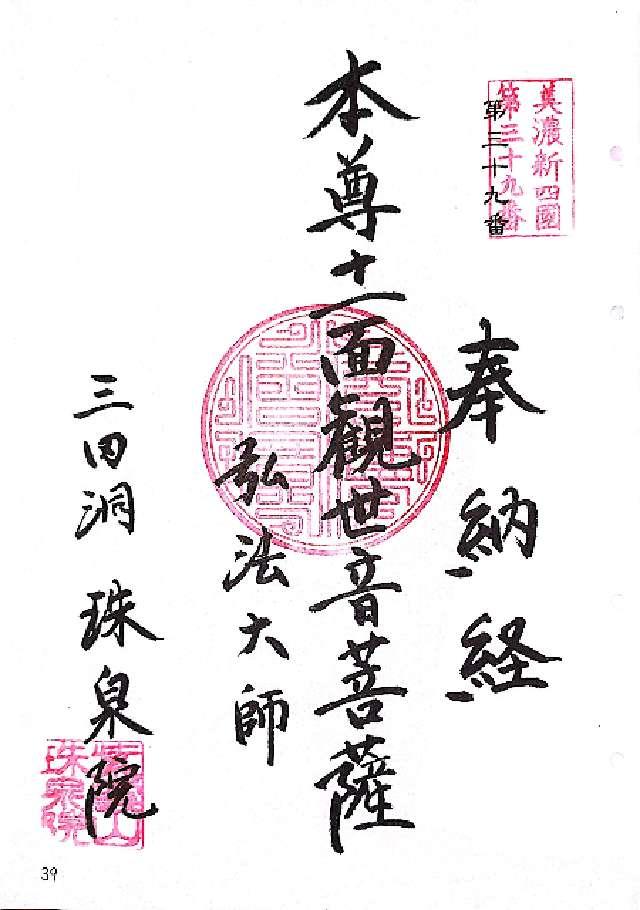 美濃新四國
第三十九番
第三十九番
奉納経
本尊十一面観世音菩薩
弘法大師
三田洞 珠泉院
珠泉院
39